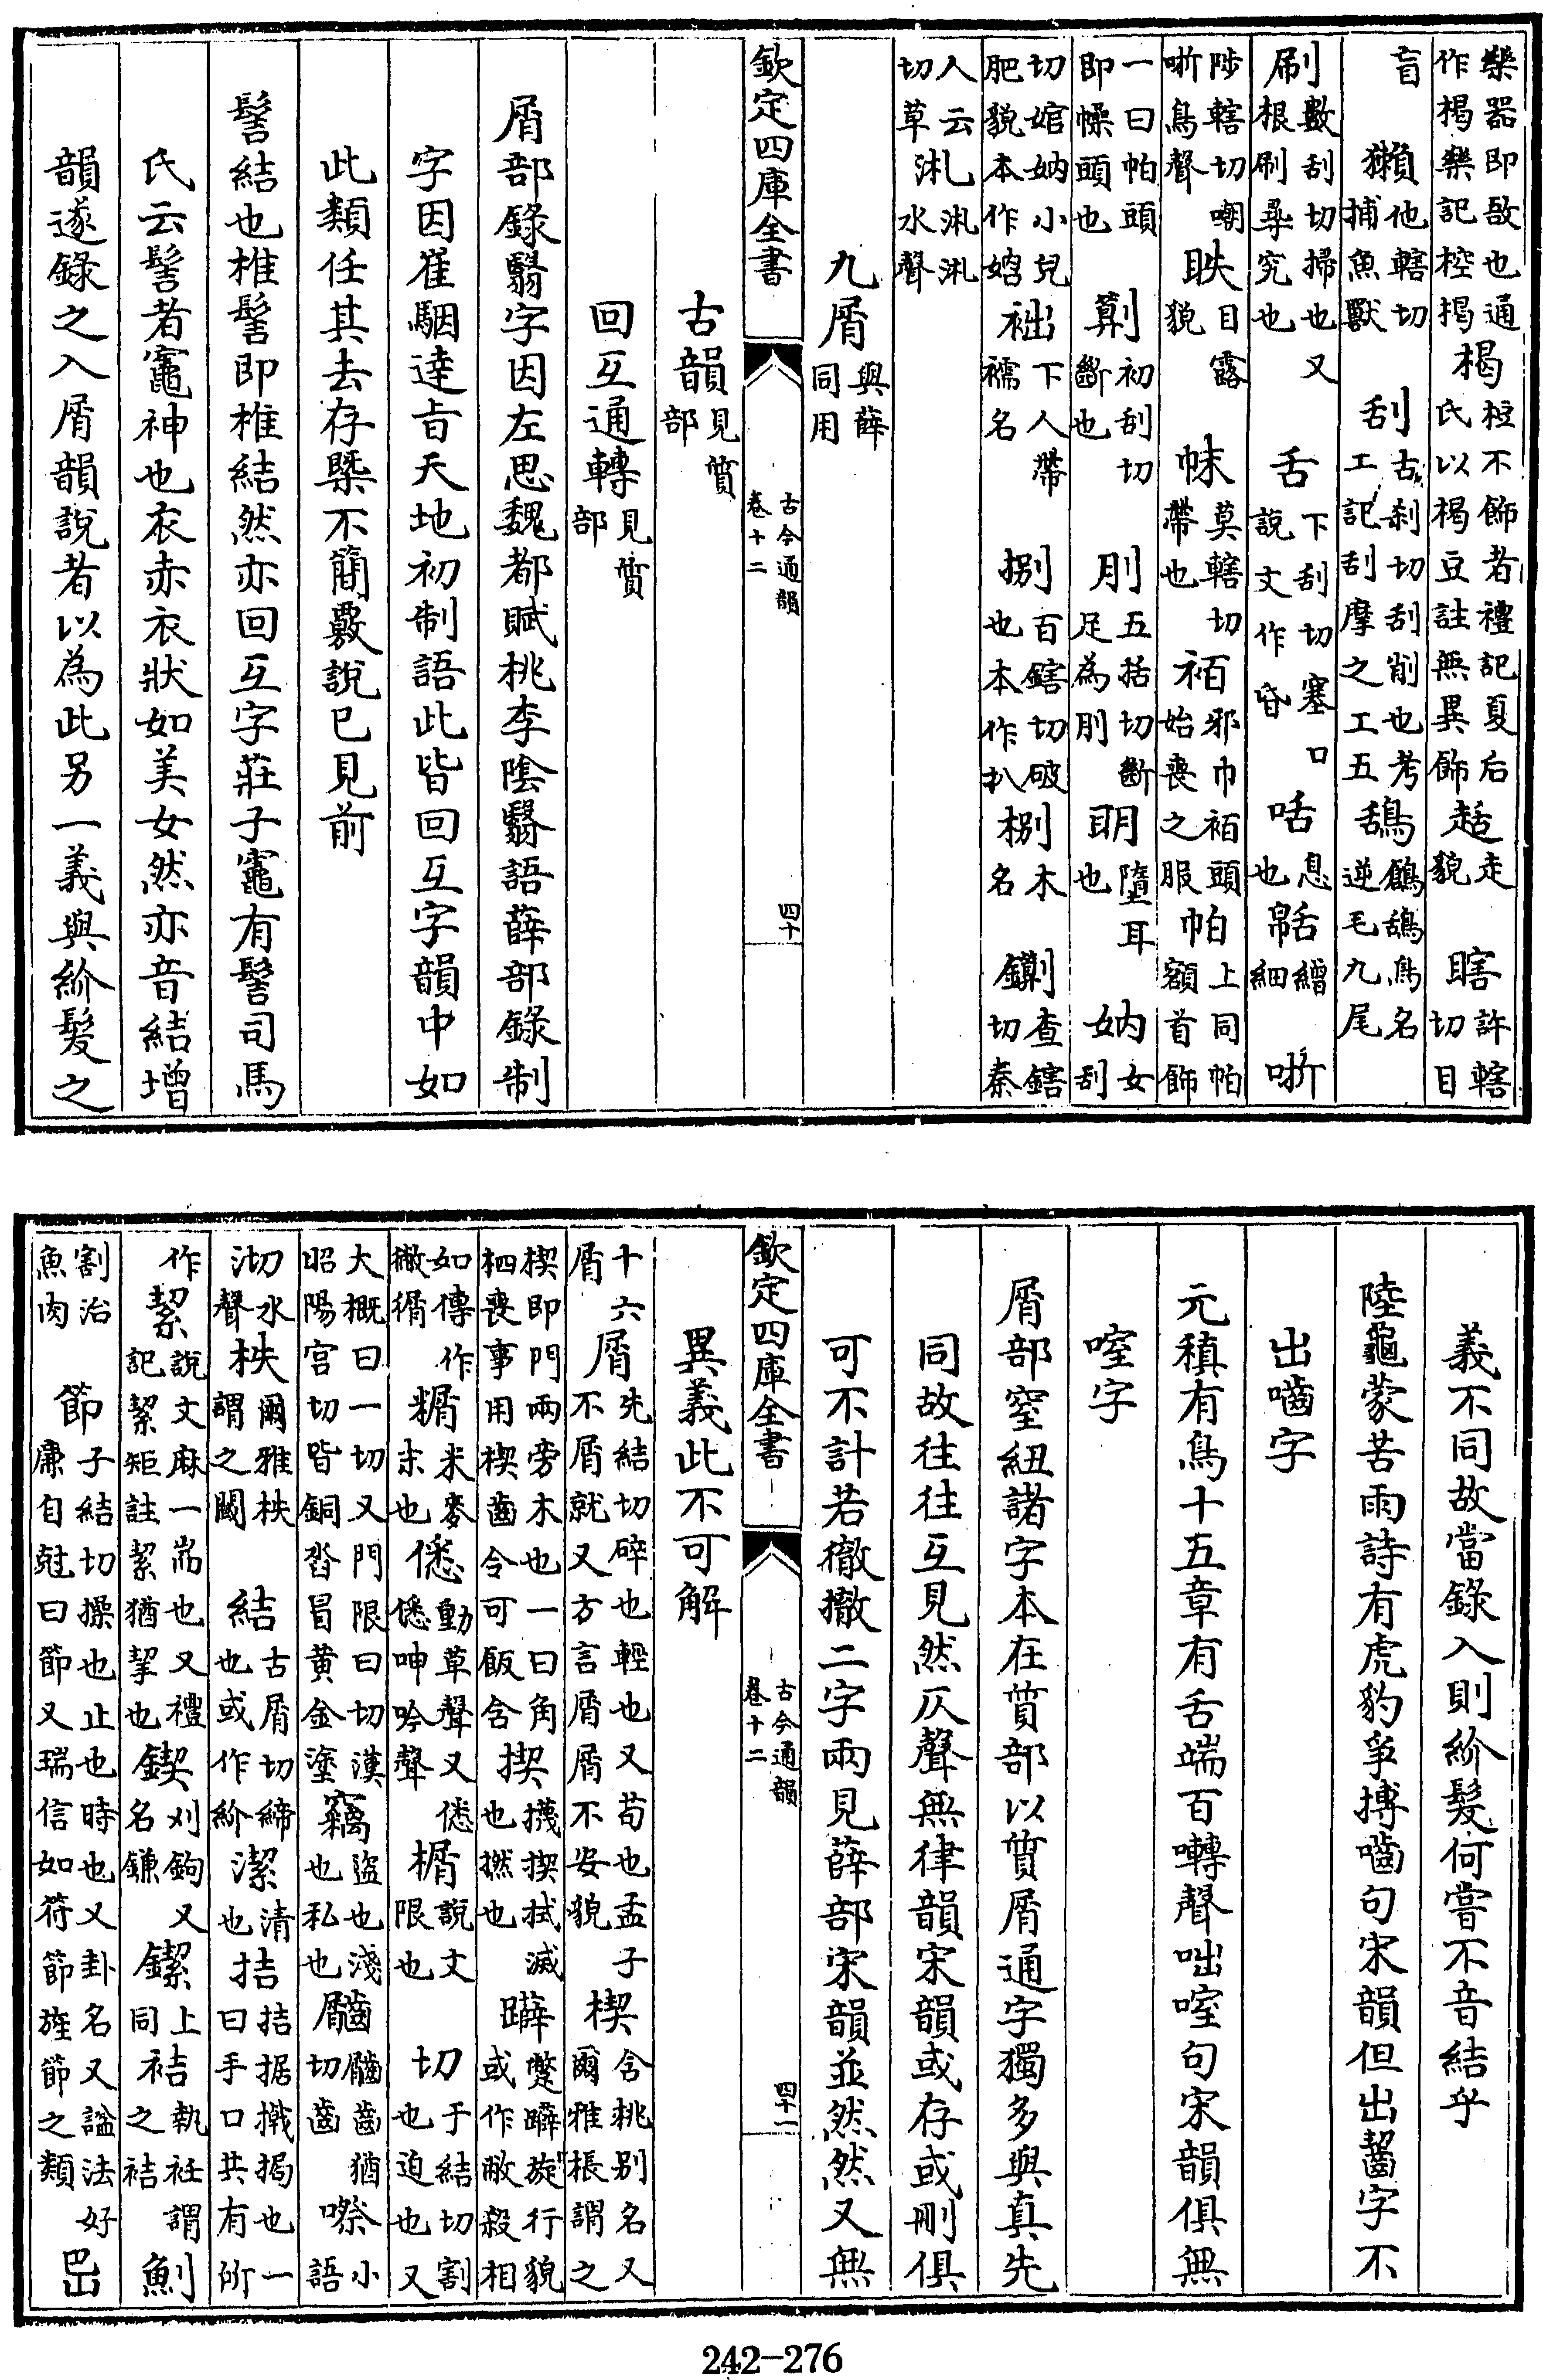 樂器即敔也通作楬樂記椌楬 楬 杜不飾者禮記夏后氏以楬豆註無異飾 趏 走貌 瞎 許轄切目
盲 獺 他轄切捕魚獸 刮 古刹切刮削也考工記刮摩之工五 鴰 鶬鴰鳥名逆毛九尾
刷 數刮切掃也又根刷尋究也 舌 下刮切塞口說文作昏 咶 息也 𦧺 繒細 哳
陟轄切嘲哳鳥聲 眣 目露貌 帓 莫轄切帶也 袹 邪巾袹頭始喪之服 帕 上同帕額首飾
一曰帕頭即幧頭也 劕 初刮切斷也 刖 五括切斷足為刖 明 墮耳也 妠 女刮
切婠妠小兒肥貌本作㛿 袦 下人帶襦名 捌 百鎋切破也本作扒 㭭 木名 鍘 查鎋切秦
人云札汃汃切草汃水聲
九屑 與薛同用
欽定四庫全書 古今通韻卷十二 四十
古韻 見質部
回互通轉 見質部
屑部錄翳字因左思魏都賦桃李陰翳語薛部錄制
字因崔駰達旨天地初制語此皆回互字韻中如
此類任其去存槩不簡覈說已見前
髻結也椎髻即椎結然亦回互字莊子竈有髻司馬
氏云髻者竈神也衣赤衣狀如美女然亦音結增
韻遂錄之入屑韻說者以為此另一義與紒髮之
義不同故當錄入則紒髮何嘗不音結乎
陸龜蒙苦雨詩有虎豹爭搏嚙句宋韻但出齧字不
出嚙字
元稹有鳥十五章有舌端百囀聲咄咥句宋韻俱無
咥字
屑部窒紐諸字本在質部以質屑通字獨多與真先
同故往往互見然仄聲無律韻宋韻或存或刪俱
可不計若徹撤二字兩見薛部宋韻並然然又無
欽定四庫全書 古今通韻卷十二 四十一
異義此不可解
十六屑 屑 先結切碎也輕也又苟也孟子不屑就又方言屑屑不安貌 楔 含桃别名又爾雅棖謂之
楔即門兩旁木也一曰角柶喪事用楔齒令可飯含 揳 㩪揳拭滅也撚也 躃 蹩躃旋行貌或作䠥殺相
如傳作徶㣯 糏 米麥末也 僁 動草聲又僁僁呻吟聲 榍 說文限也 切 于結切割也迫也又
大概曰一切又門限曰切漢昭陽宫切皆銅沓冒黄金塗 竊 盜也淺也私也 𪙉 𪙉齒猶切齒 嚓 小語
沏 切水聲 柣 爾雅柣謂之閾 結 古屑切締也或作紒 潔 清也 拮 拮据撠挶也一曰手口共有所
作 絜 說文麻一耑也又禮記絜矩註絜猶挈也 鍥 刈鉤又名鎌 鐭 上同 袺 執衽謂之袺 魝
割治魚肉 節 子結切操也止也時也又卦名又諡法好廉自尅曰節又瑞信如符節旌節之類 𡴭
242-276